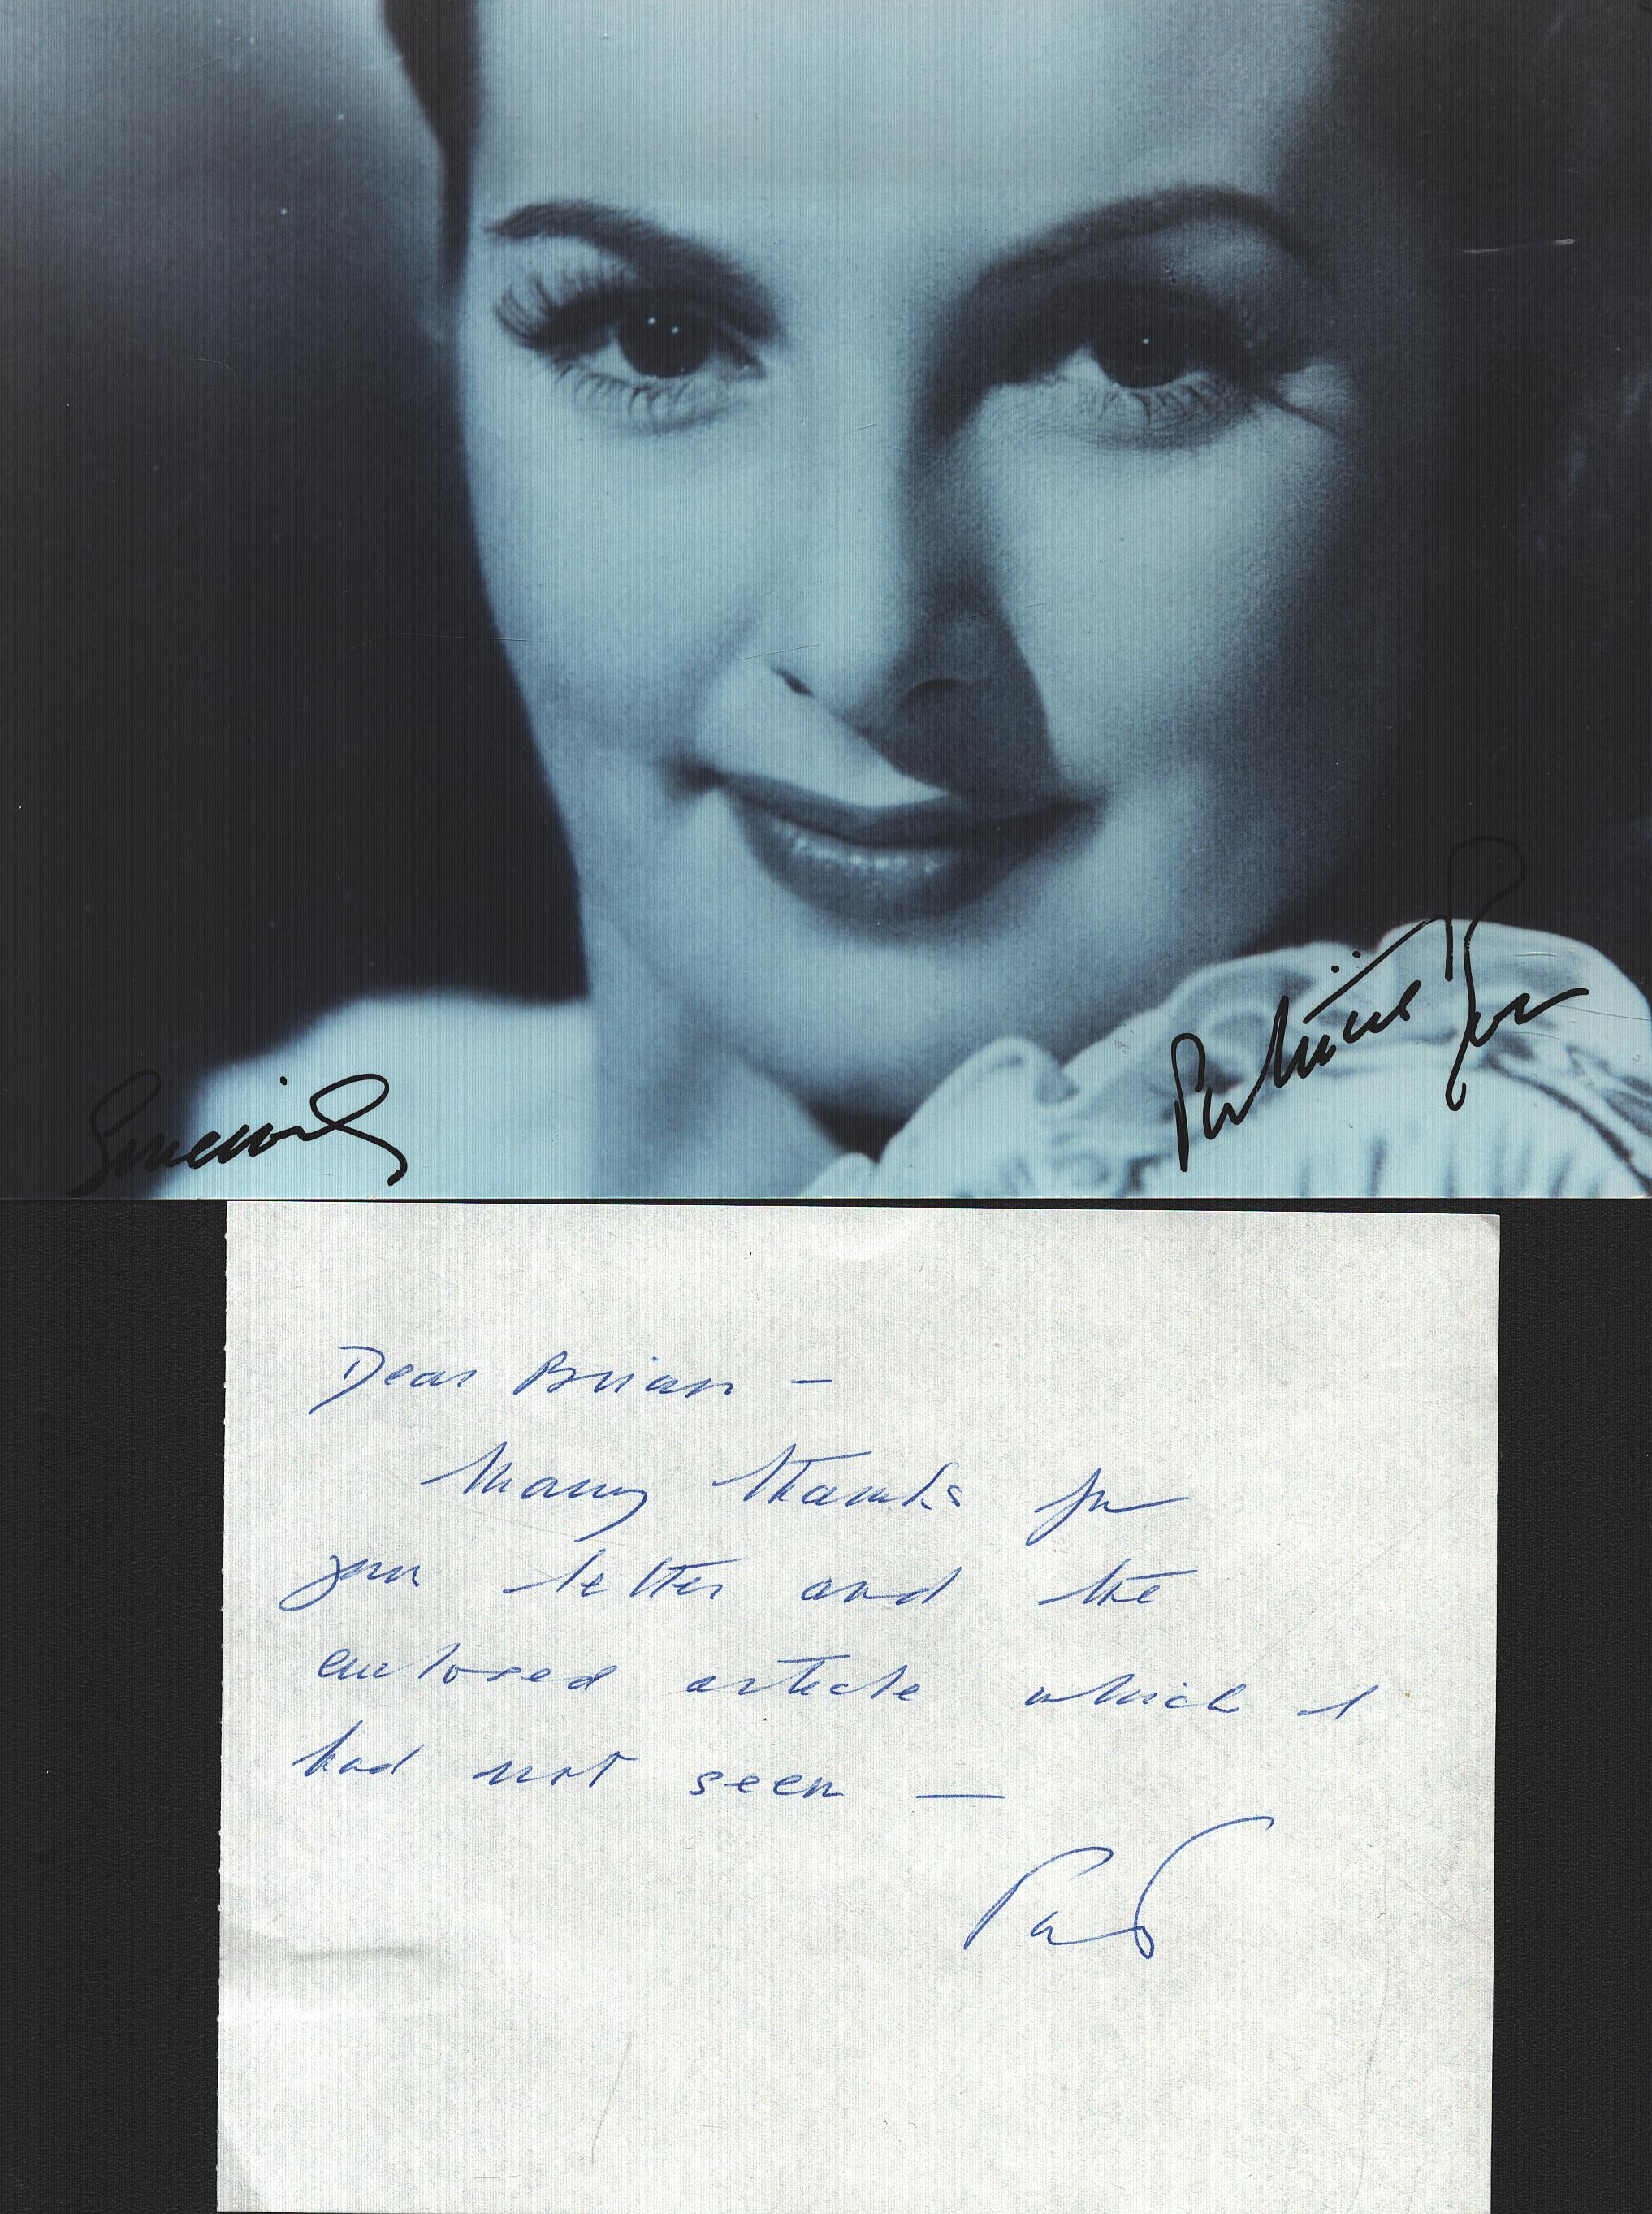 Sincerely
Patricia
Dear Brian –
Many thanks for
your letter and the
enclosed article which I
had not seen —
Pat